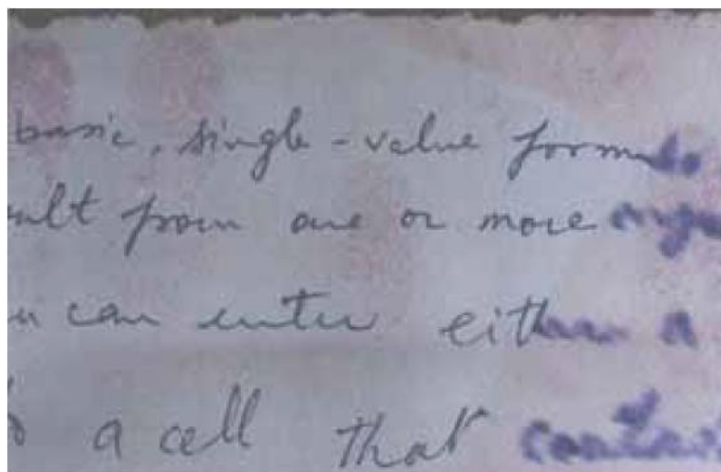 basic, single-value formula
from one or more
can enter either a
a cell that contains